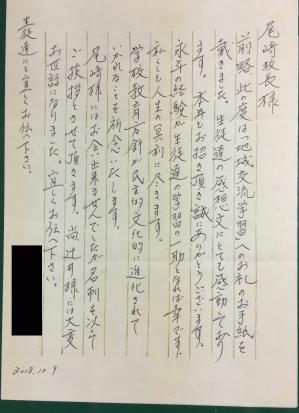 尾崎校長様
前略 此の度は「地域交流学習」へのお礼のお手紙を
戴きました。生徒達の感想文にとても感動しており
ます。本年もお招き頂き誠にありがとうございます。
永年の経験が生徒達の学習の一助となれば幸です。
私くしも人生の冥利に尽きます。
学校教育方針が民主的文化的に進化されて
いかれることを祈念いたします。
尾崎様にはお会い出来ませんでしたが名刺を以って
ご挨拶とさせて頂きます。尚、辻井様には大変
お世話になりました。宜しくお伝へ下さい。
生徒達にも宜しくお伝へ下さい。
2018.10.9